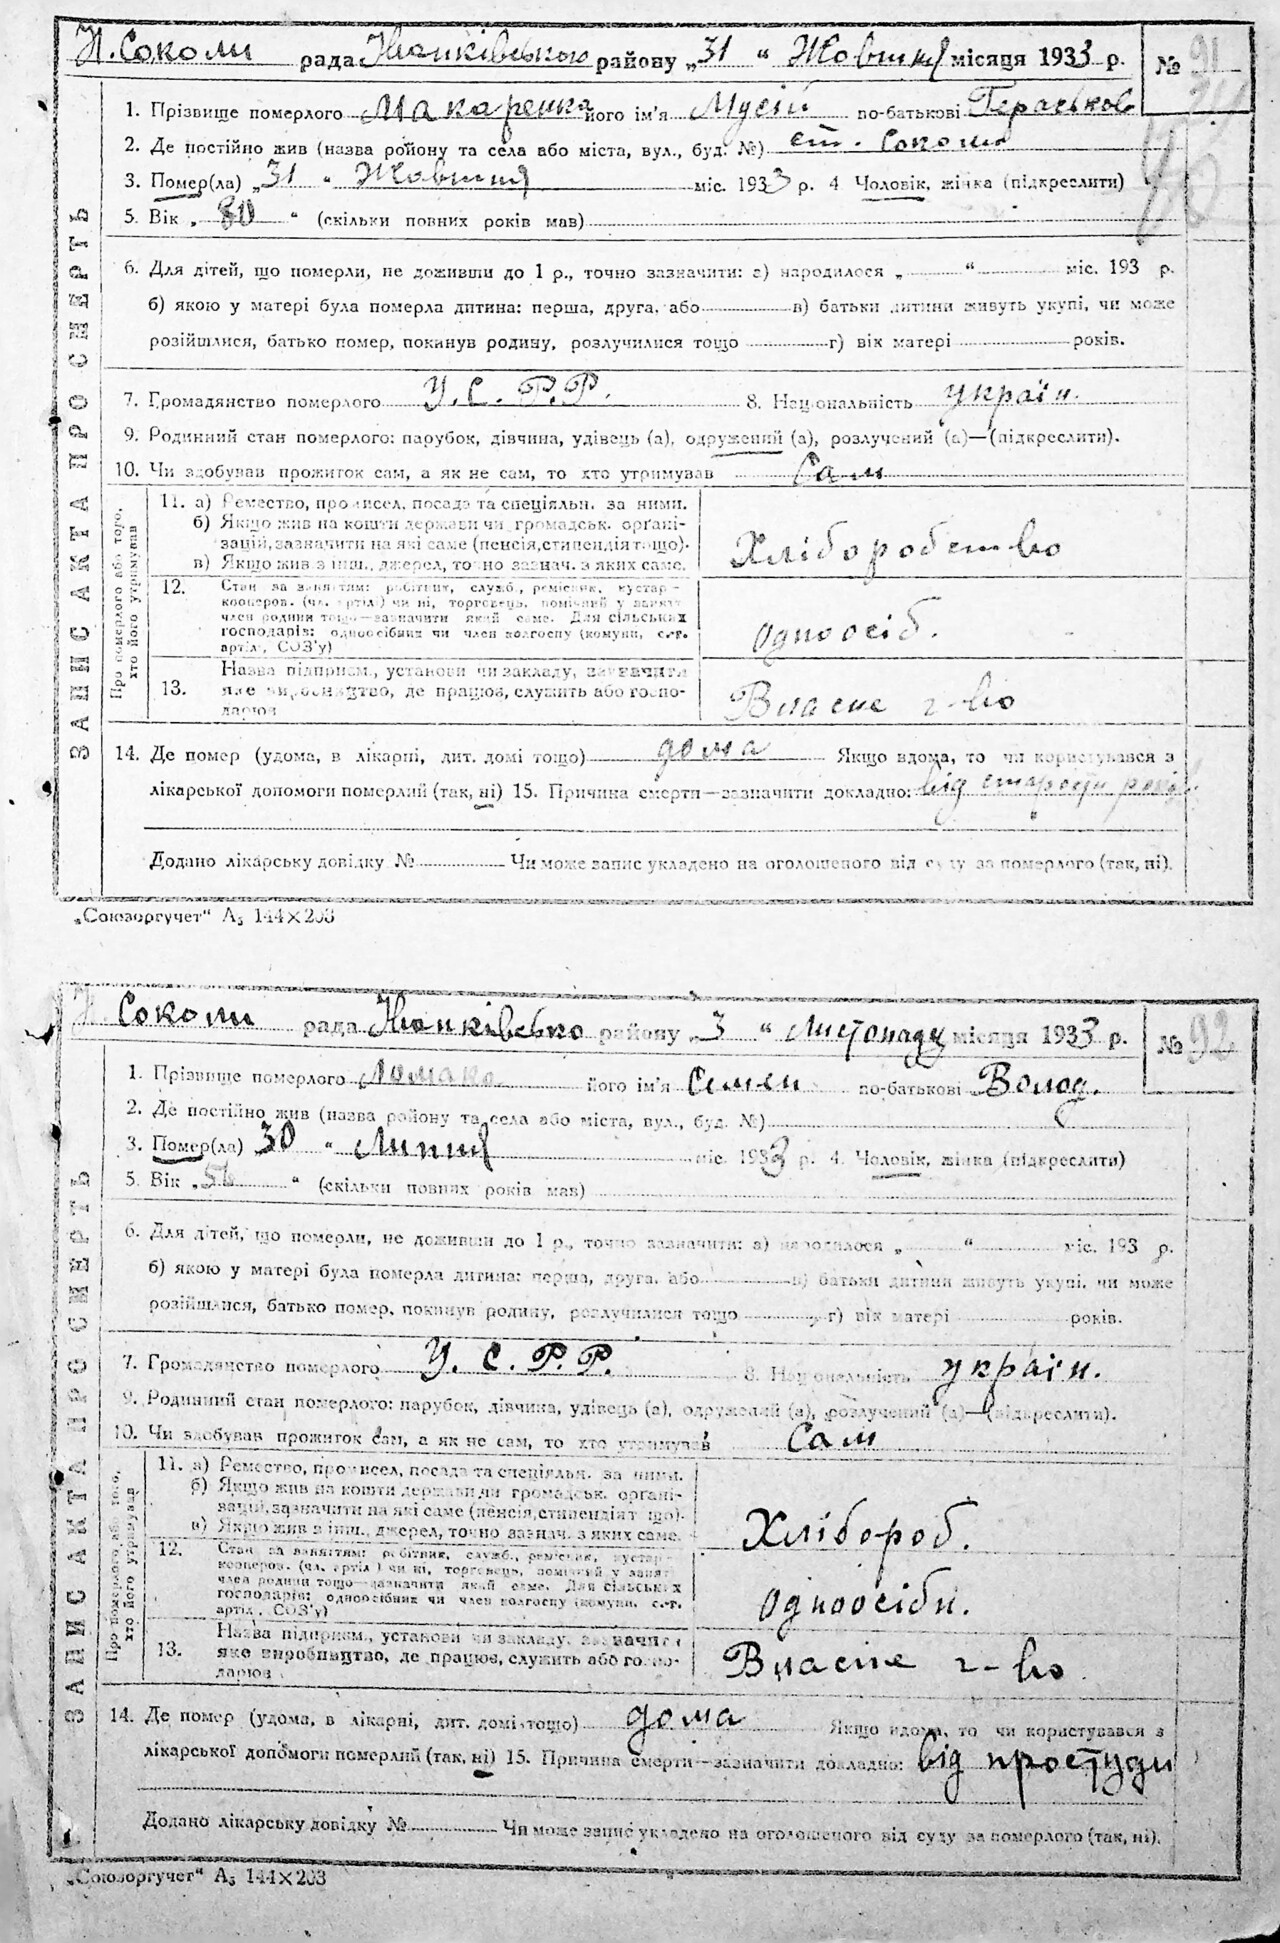 Н. Соколи рада Іванківського району „31 “ Жовтня місяця 1933 р. № 91
1. Прізвище померлого Макаренка його ім'я Мусій по-батькові
2. Де постійно жив (назва району та села або міста, вул., буд. №) ст. Соколи
3. Помер(ла) „31 “ Жовтня міс. 1933 р. 4 Чоловік, жінка (підкреслити)
5. Вік „ 80 “ (скільки повних років мав)
6. Для дітей, що померли, не доживши до 1 р., точно зазначити: а) народилося „ “ міс. 193 р.
б) якою у матері була померла дитина: перша, друга, або в) батьки дитини живуть укупі, чи може
розійшлися, батько помер, покинув родину, розлучилися тощо г) вік матері років.
7. Громадянство померлого У.С.Р.Р. 8. Національність україн.
9. Родинний стан померлого: парубок, дівчина, удівець (а), одружений (а), розлучений (а)—(підкреслити).
10. Чи здобував прожиток сам, а як не сам, то хто утримував Сам
ЗАПИС АКТА ПРО СМЕРТЬ
Про померлого або того,
хто його утримував
11. а) Ремество, промисел, посада та спеціяльн. за ними.
б) Якщо жив на кошти держави чи громадськ. органі-
зацій, зазначити на які саме (пенсія, стипендія тощо).
в) Якщо жив з інш. джерел, точно зазнач. з яких саме.
Хліборобство
12. Стан за заняттям: робітник, служб., ремісник, кустар-
кооперов. (чл. артілі) чи ні, торговець, помічний у занятт.
член родини тощо—зазначити який саме. Для сільських
господарів: одноосібник чи член колгоспу (комуни, с.-г.
артілі, СОЗ'у)
одноосіб.
13. Назва підприєм., установи чи закладу, зазначити
яке виробництво, де працює, служить або госпо-
дарює
Власне г-во
14. Де помер (удома, в лікарні, дит. домі тощо) дома Якщо вдома, то чи користувався з
лікарської допомоги померлий (так, ні) 15. Причина смерти—зазначити докладно: від старости
Додано лікарську довідку № Чи може запис укладено на оголошеного від суду за померлого (так, ні).
„Союзоргучет“ А5 144×203
Н. Соколи рада Іванківсько району „3 “ Листопаду місяця 1933 р. № 92
1. Прізвище померлого Ломако його ім'я Семен по-батькові Волод.
2. Де постійно жив (назва району та села або міста, вул., буд. №)
3. Помер(ла) 30 “ Липня міс. 1933 р. 4. Чоловік, жінка (підкреслити)
5. Вік „ “ (скільки повних років мав)
6. Для дітей, що померли, не доживши до 1 р., точно зазначити: а) народилося „ “ міс. 193 р.
б) якою у матері була померла дитина: перша, друга, або в) батьки дитини живуть укупі, чи може
розійшлися, батько помер, покинув родину, розлучилися тощо г) вік матері років.
7. Громадянство померлого У.С.Р.Р. 8. Національність україн.
9. Родинний стан померлого: парубок, дівчина, удівець (а), одружений (а), розлучений (а)—(підкреслити).
10. Чи здобував прожиток сам, а як не сам, то хто утримував Сам
ЗАПИС АКТА ПРО СМЕРТЬ
Про померлого або того,
хто його утримував
11. а) Ремество, промисел, посада та спеціяльн. за ними.
б) Якщо жив на кошти держави чи громадськ. органі-
зацій, зазначити на які саме (пенсія, стипендія тощо).
в) Якщо жив з інш. джерел, точно зазнач. з яких саме.
Хлібороб.
12. Стан за заняттям: робітник, служб., ремісник, кустар-
кооперов. (чл. артілі) чи ні, торговець, помічний у занятт.
член родини тощо—зазначити який саме. Для сільських
господарів: одноосібник чи член колгоспу (комуни, с.-г.
артілі, СОЗ'у)
одноосібн.
13. Назва підприєм., установи чи закладу, зазначити
яке виробництво, де працює, служить або госпо-
дарює
Власне г-во
14. Де помер (удома, в лікарні, дит. домі тощо) дома Якщо вдома, то чи користувався з
лікарської допомоги померлий (так, ні) 15. Причина смерти—зазначити докладно: від простуди
Додано лікарську довідку № Чи може запис укладено на оголошеного від суду за померлого (так, ні).
„Союзоргучет“ А5 144×203